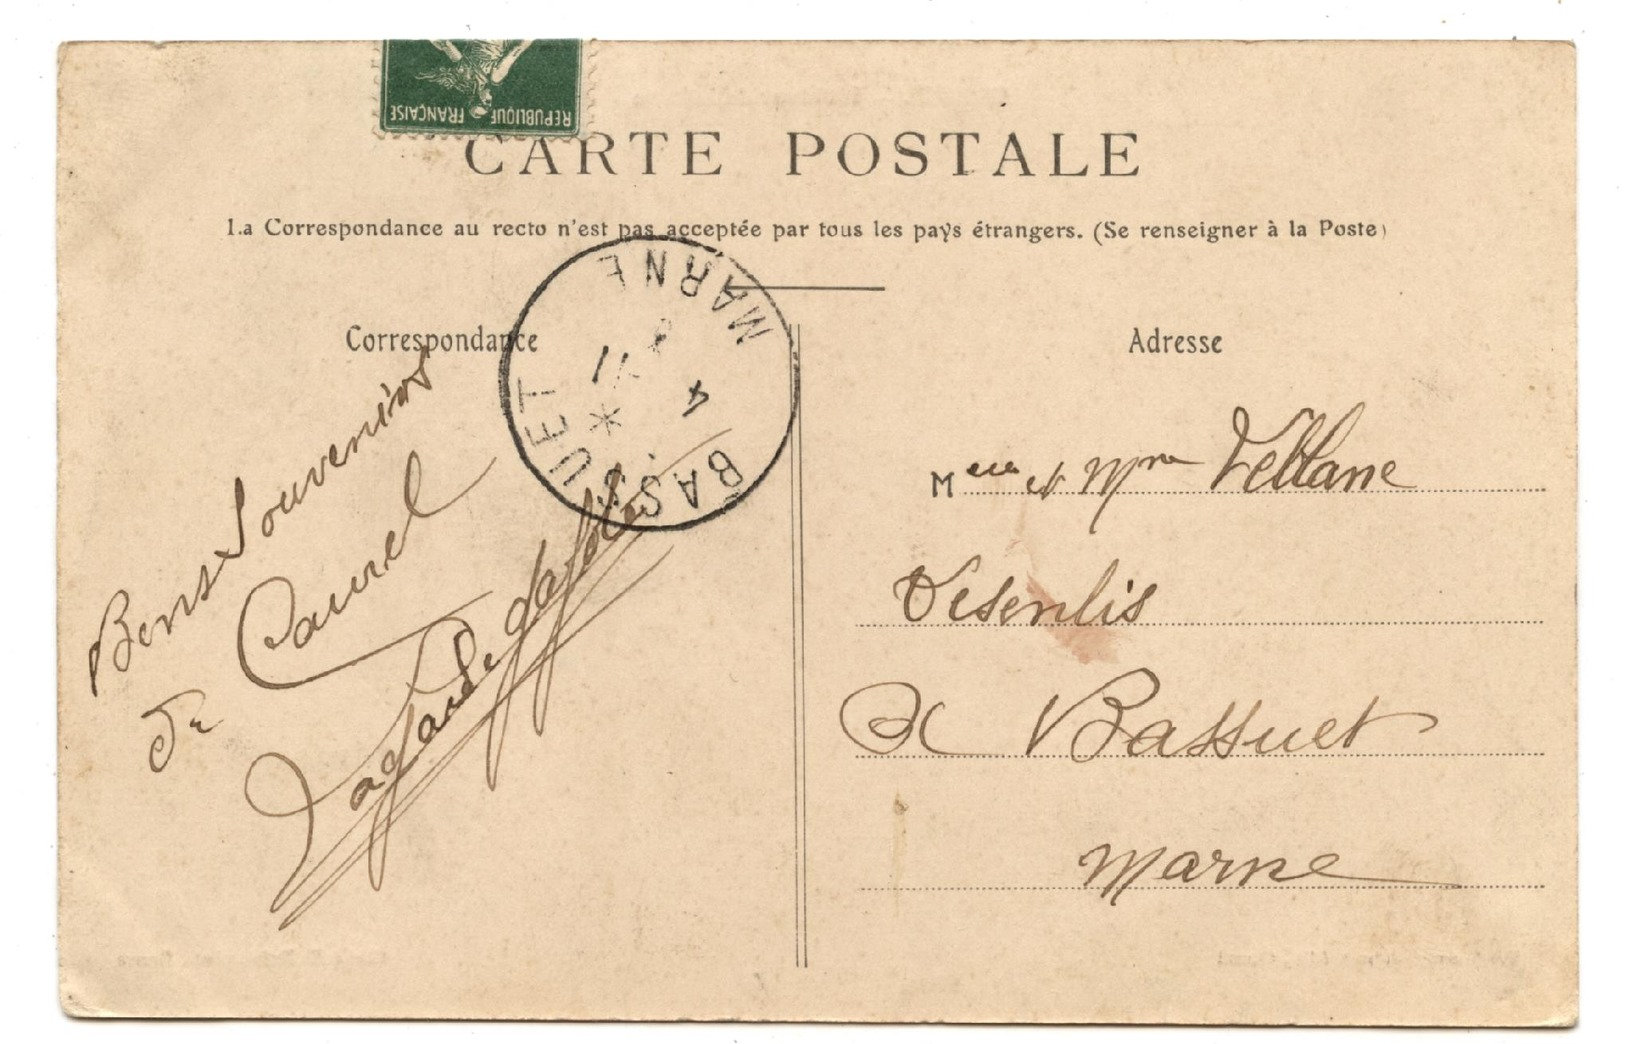 REPUBLIQUE FRANÇAISE
CARTE POSTALE
La Correspondance au recto n'est pas acceptée par tous les pays étrangers. (Se renseigner à la Poste)
Correspondance
Bons Souvenirs
de Caurel
BASSUET
MARNE
4
11
Adresse
M et Mme
à Bassuet
Marne